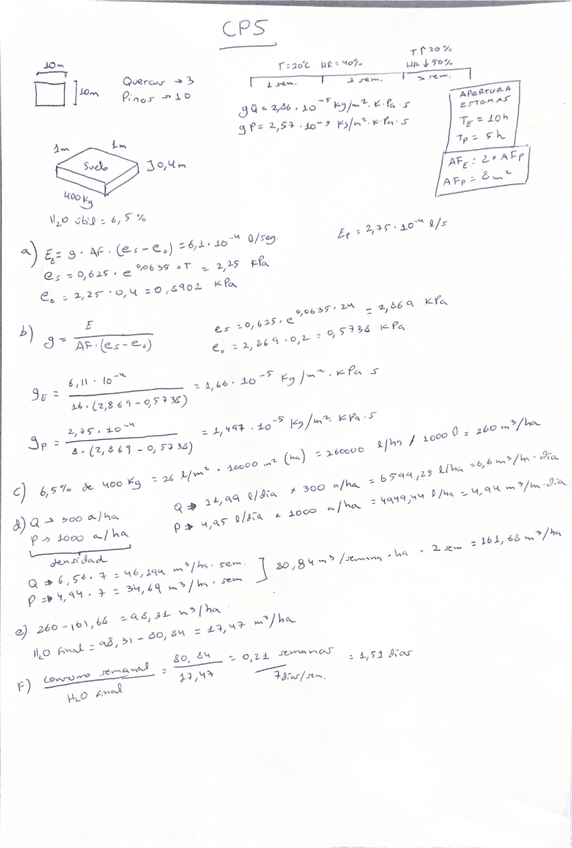 CP5
10m
10m
Quercus → 3
Pinos → 10
T=20℃ HR=40%
T↑20%
HR↓50%
1 sem. 2 sem. 3 sem.
gQ = 2,86 · 10⁻⁵ Kg/m². K·Pa·s
gP = 2,57 · 10⁻⁵ Kg/m². K·Pa·s
APERTURA
ESTOMAS
T_E = 10h
T_P = 5h
AF_E = 2 × AF_P
AF_P = 8m²
1m 1m
Suelo
0,4m
400Kg
H₂O útil = 6,5%
a) E_E = g · AF · (es - e₀) = 6,1 · 10⁻⁴ l/seg
E_P = 2,75 · 10⁻⁴ l/s
es = 0,625 · e^0,0635×T = 2,25 KPa
e₀ = 2,25 · 0,4 = 0,8902 KPa
b) g = E / AF·(es - e₀)
es = 0,625 · e^0,0635·24 = 2,869 KPa
e₀ = 2,869 · 0,2 = 0,5738 KPa
g_E = 6,11 · 10⁻⁴ / 16 · (2,869 - 0,5738) = 1,66 · 10⁻⁵ Kg/m². KPa·s
g_P = 2,75 · 10⁻⁴ / 8 · (2,869 - 0,5738) = 1,497 · 10⁻⁵ Kg/m². KPa·s
c) 6,5% de 400 Kg = 26 l/m² · 10000 m² (ha) = 260000 l/ha / 1000 l = 260 m³/ha
d) Q → 300 a/ha
P → 1000 a/ha
densidad
Q → 21,99 l/dia × 300 a/ha = 6599,25 l/ha = 6,6 m³/ha·dia
P → 4,95 l/dia × 1000 a/ha = 4949,44 l/ha = 4,94 m³/ha·dia
Q → 6,56 · 7 = 46,194 m³/ha·sem.
P → 4,94 · 7 = 34,69 m³/ha·sem
80,84 m³/semana·ha · 2 sem = 161,68 m³/ha
e) 260 - 161,68 = 98,31 m³/ha
H₂O final = 98,31 - 80,84 = 17,47 m³/ha
F) consumo semanal / H₂O final = 80,84 / 17,47 = 0,21 semanas / 7 dias/sem. = 1,51 dias